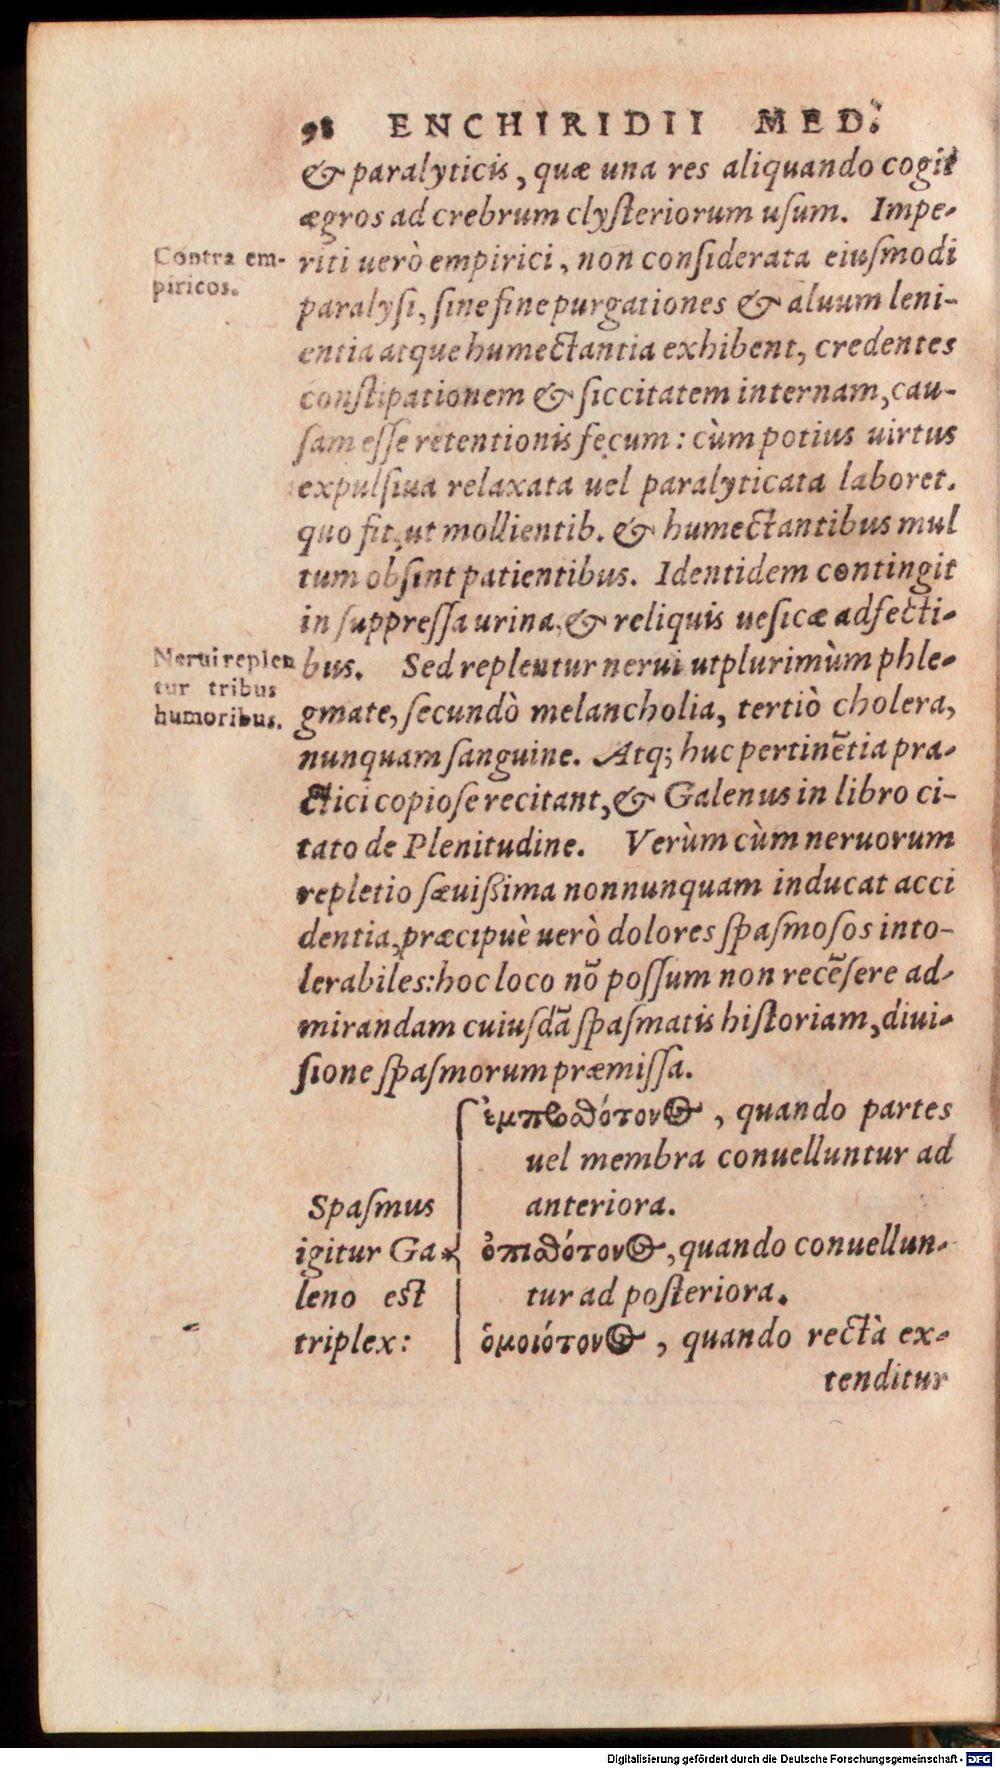 98 ENCHIRIDII MED.
& paralyticis, quæ una res aliquando cogit
ægros ad crebrum clysteriorum usum. Impe-
Contra em-
piricos.
riti uerò empirici, non considerata eiusmodi
paralysi, sine fine purgationes & aluum leni-
entia atque humectantia exhibent, credentes
constipationem & siccitatem internam, cau-
sam esse retentionis fęcum: cùm potius uirtus
expulsiua relaxata uel paralyticata laboret.
quo fit, ut mollientib. & humectantibus mul
tum obsint patientibus. Identidem contingit
in suppressa urina, & reliquis uesicæ adfecti-
Nerui replen
tur tribus
humoribus.
bus. Sed replentur nerui utplurimùm phle-
gmate, secundò melancholia, tertiò cholera,
nunquam sanguine. Atq; huc pertinẽtia pra-
ctici copiose recitant, & Galenus in libro ci-
tato de Plenitudine. Verùm cùm neruorum
repletio sæuißima nonnunquam inducat acci
dentia, præcipuè uerò dolores spasmosos into-
lerabiles: hoc loco nõ possum non recẽsere ad-
mirandam cuiusdã spasmatis historiam, diui-
sione spasmorum præmissa.
Spasmus
igitur Ga-
leno est
triplex:
ἐμπροθότονος, quando partes
uel membra conuelluntur ad
anteriora.
ὀπισθότονος, quando conuellun-
tur ad posteriora.
ὁμοιότονος, quando rectà ex-
tenditur
Digitalisierung gefördert durch die Deutsche Forschungsgemeinschaft - DFG